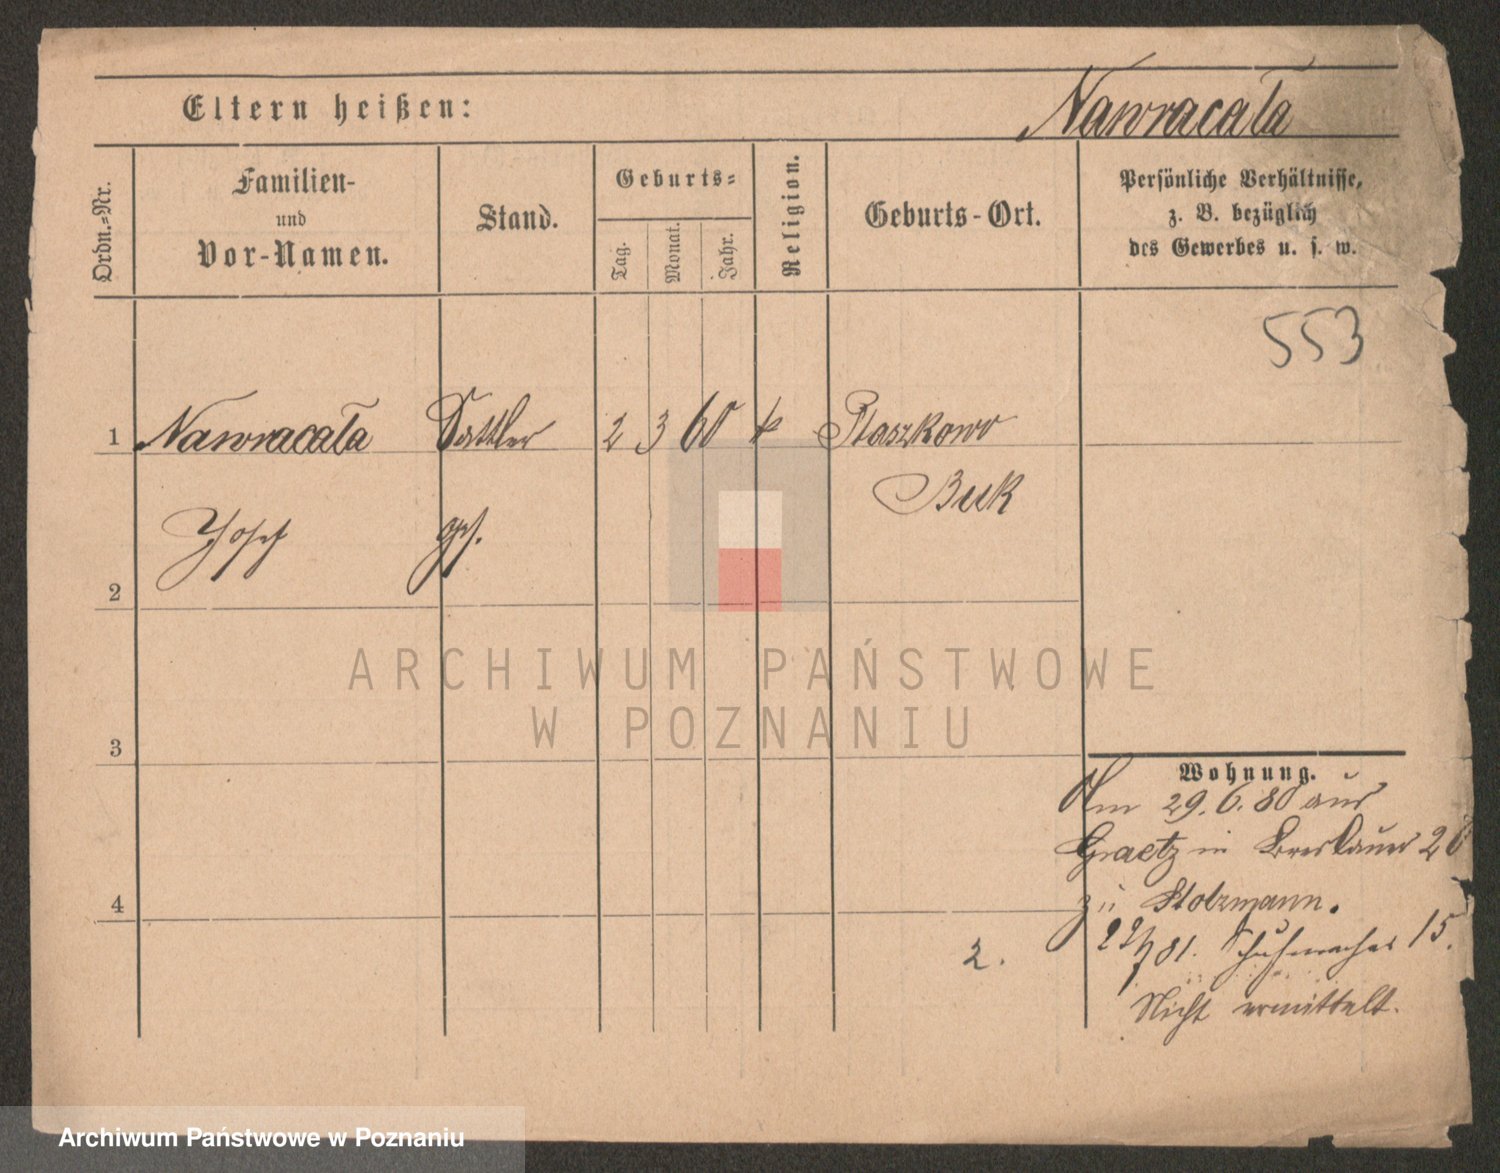 Eltern heißen: Nawracała
Ordn.-Nr.
Familien-
und
Vor-Namen.
Stand.
Geburts-
Tag.
Monat.
Jahr.
Religion.
Geburts-Ort.
Persönliche Verhältnisse,
z. B. bezüglich
des Gewerbes u. s. w.
553
1 Nawracała Sattler 2 3 60 k Ptaszkowo
Buk
Josef ges.
2
ARCHIWUM PAŃSTWOWE
W POZNANIU
3
Wohnung.
Am 29.6.80 aus
Graetz in Breslauer 26
4
zu Stolzmann.
22/7 81. Schuhmacher 15.
2.
Nicht ermittelt.
Archiwum Państwowe w Poznaniu